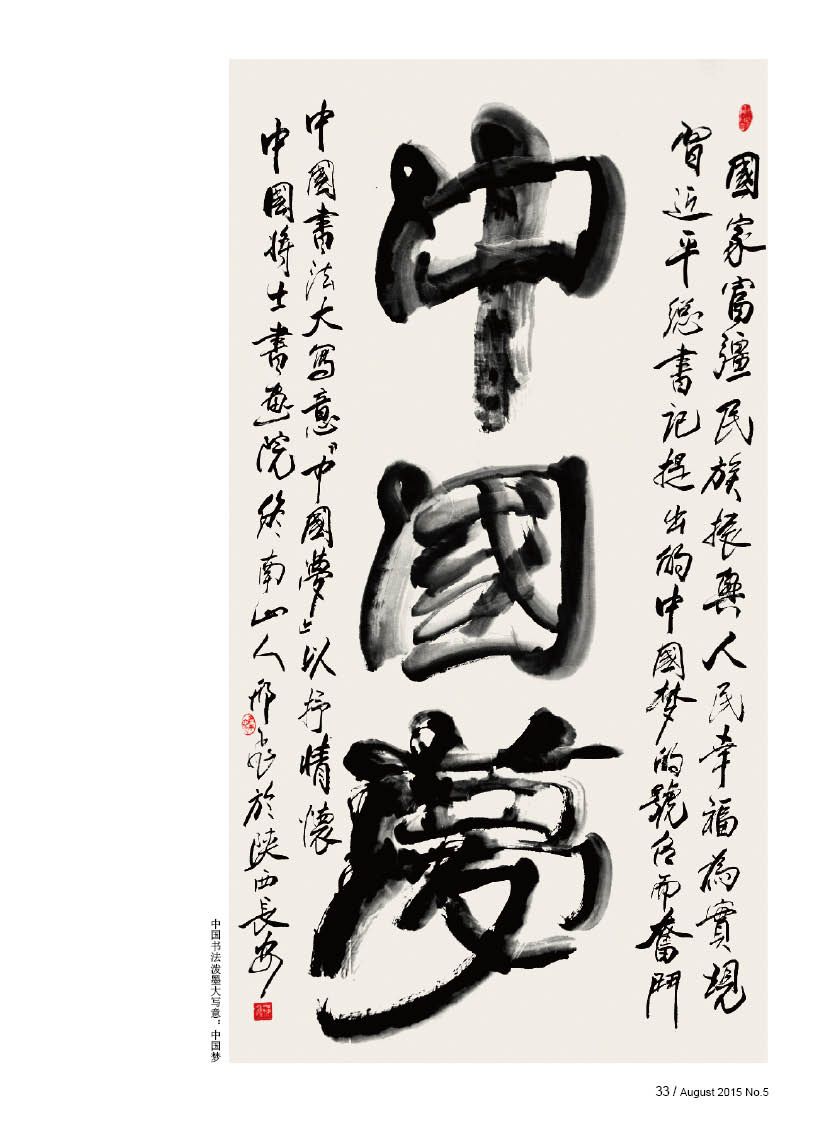 國家富疆民族振興人民幸福為實現
習近平總書記提出的中國梦的號召而奮鬥
中國夢
中國書法大寫意“中國夢”以抒情懷
中國將士書画院終南山人邢
於陕西長安
中国书法泼墨大写意：中国梦
33 / August 2015 No.5